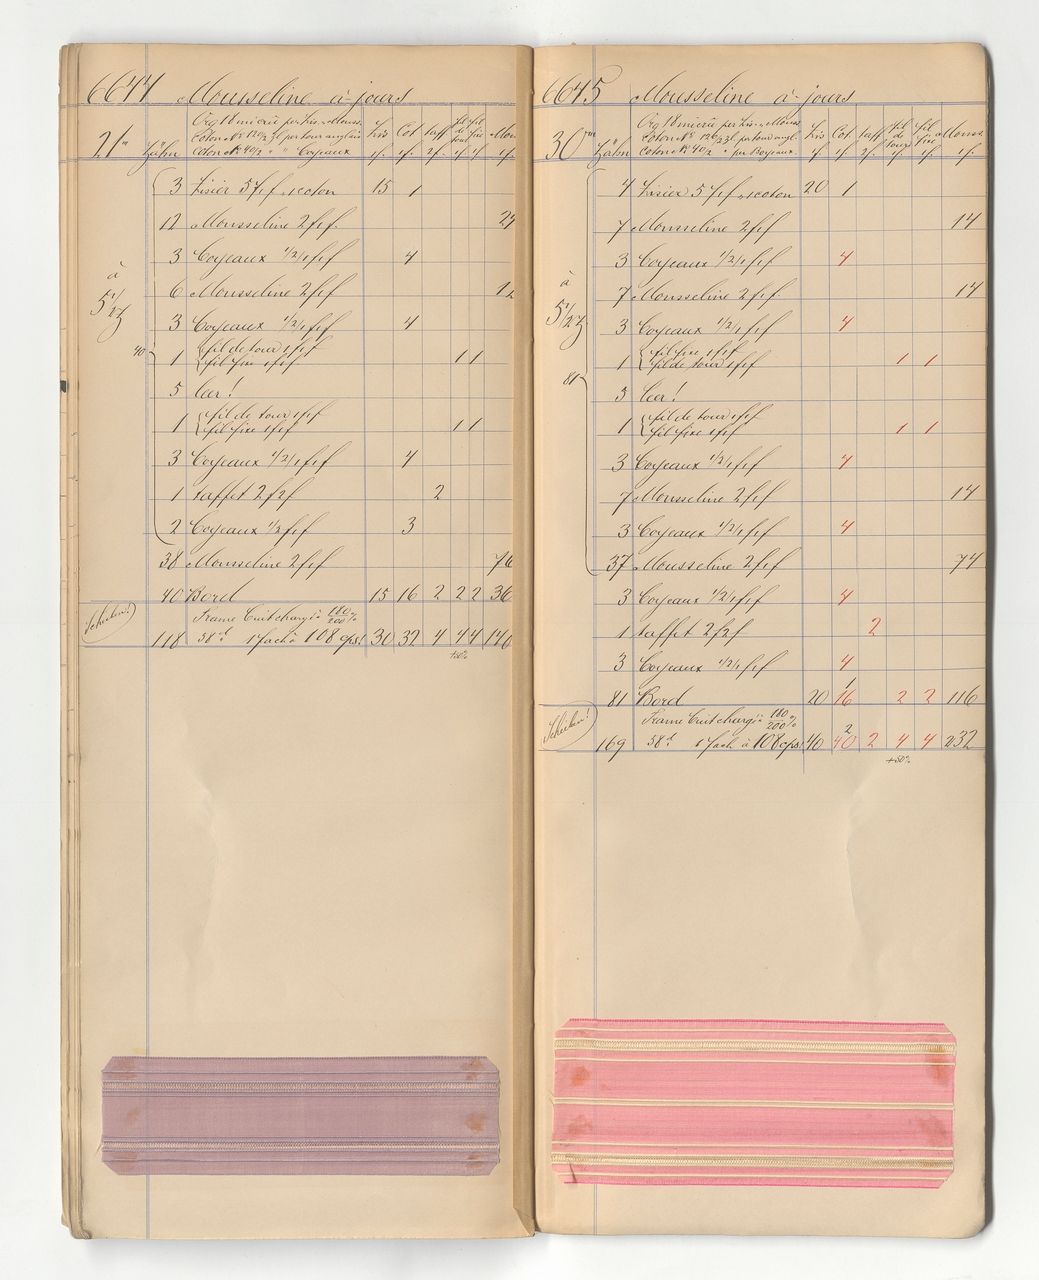 6644 Mousseline à-jours
21m Zähn
Org 18 micrü per Lis. u. Mouss.
Coton No 120/2 fl per tour anglais
Coton No 40/2 " " Coyeaux
Lis 1f. Cot 1f. taff 2f. fil de tour 1f fil fixe 1f Mou 1f.
3 Lisier 5f1f. 1 coton 15 1
12 Mousseline 2f1f. 24
3 Coyeaux 1/2/1f1f 4
à 5 1/2 Z
6 Mousseline 2f1f 12
3 Coyeaux 1/2/1f1f 4
40
1 fil de tour 1f1f
fil fixe 1f1f 1 1
5 leer!
1 fil de tour 1f1f
fil fixe 1f1f 1 1
3 Coyeaux 1/2/1f1f 4
1 taffet 2f2f 2
2 Coyeaux 1/2f1f 3
38 Mousseline 2f1f 76
40 Bord 15 16 2 2 2 36
Trame Cuit chargé 180/200%
118 58d 1 fach à 108 cps! 30 32 4 4 4 140
+50%
6645 Mousseline à-jours
30m Zähn
Org 18 micrü per Lis. u. Mouss.
Coton No 120/2 fl per tour angl.
Coton No 40/2 " per Coyeaux.
Lis 1f Cot. 1f taff 2f. fil de tour 1f. fil fixe 1f. Mouss. 1f.
4 Lisier 5f1f. 1 coton 20 1
7 Mousseline 2f1f 14
3 Coyeaux 1/2/1f1f 4
à 5 1/2 Z
7 Mousseline 2f1f. 14
3 Coyeaux 1/2/1f1f 4
1 fil fixe 1f1f
fil de tour 1f1f 1 1
81
3 leer!
1 fil de tour 1f1f
fil fixe 1f1f 1 1
3 Coyeaux 1/2/1f1f 4
7 Mousseline 2f1f 14
3 Coyeaux 1/2/1f1f 4
37 Mousseline 2f1f 74
3 Coyeaux 1/2/1f1f 4
1 taffet 2f2f 2
3 Coyeaux 1/2/1f1f 4
81 Bord 20 1 16 2 2 116
Trame Cuit chargé 180/200%
169 58d 1 fach à 108 cps! 40 2 40 2 4 4 232
+50%